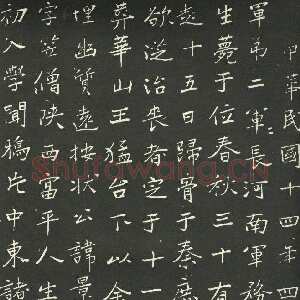 中華民國十四年
軍弟二軍長河南軍務
生薨于位春秋三十有
十五日歸骨于秦
欲從治喪者定于十一
葬華山王猛台下以余
埋幽質遠按狀公諱景
字笠僧陝西富平人生
初入學聞中東諸
Shufawang.cn